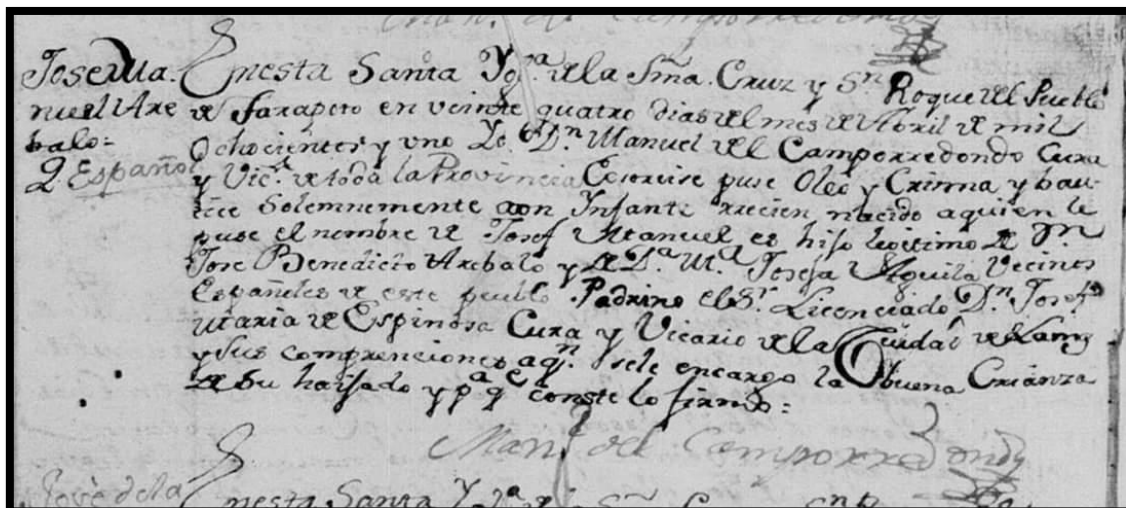 Man. del Camporredondo
Josef Ma- Enesta Santa Yg.ª de la Sma. Cruz y Sn Roque del Pueblo
nuel Are de Tarapoto en veinte quatro dias del mes de Abril de mil
balo= Ochocientos y uno Yo Dn. Manuel del Camporredondo Cura
2. Español y Vicº. de toda la Provincia Exorcise puse Oleo y Crisma y bau-
tice Solemnemente aon Infante rrecien nacido aquien le
puse el nombre de Josef Manuel, es hijo legitimo de Dn
Jose Benedicto Arebalo y de D.ª M.ª Josefa Aguila Vecinos
Españoles de este pueblo. Padrino el Sr. Licenciado Dn. Josef
Maria de Espinosa Cura y Vicario de la Ciudad de Lamas
y sus comprenciones aqn. sele encargo la buena Crianza
de su haijado y pª q conste lo firmo=
Man. del Camporredondo
José dela Enesta Santa Y